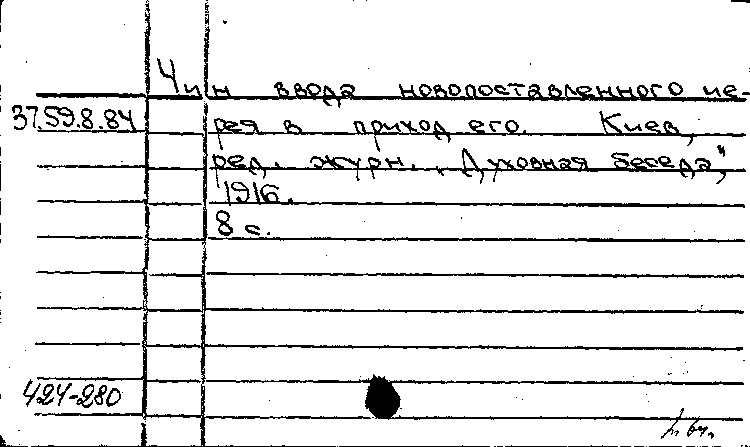 Чин ввода новопоставленного ие-
37.59.8.84
рея в приход его. Киев,
ред. журн. „Духовная беседа",
1916.
8 с.
424-280